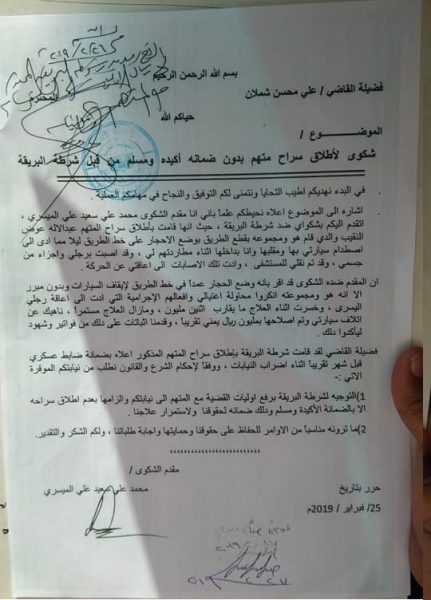 بسم الله الرحمن الرحيم
فضيلة القاضي / علي محسن شملان المحترم
حياكم الله
الموضوع /
شكوى لأطلاق سراح متهم بدون ضمانه أكيده ومسلم من قبل شرطة البريقة
في البدء نهديكم اطيب التحايا ونتمنى لكم التوفيق والنجاح في مهامكم العملية .
اشاره الى الموضوع اعلاه نحيطكم علماً بأني انا مقدم الشكوى محمد علي سعيد علي الميسري ،
اتقدم اليكم بشكواي ضد شرطة البريقة ، حيث انها قامت بأطلاق سراح المتهم عبدالاله عوض
النقيب والذي قام هو ومجموعته بقطع الطريق بوضع الاحجار على خط الطريق ليلا مما ادى الى
اصطدام سيارتي بها ومقلبها وانا بداخلها اثناء مطاردتهم لي ، وقد اصبت برجلي واجزاء من
جسمي ، وقد تم نقلي للمستشفى ، وادت تلك الاصابات الى اعاقتي عن الحركة .
ان المقدم ضده الشكوى قد اقر بانه وضع الحجار عمداً في خط الطريق لإيقاف السيارات وبدون مبرر
الا انه هو ومجموعته انكروا محاولة اغتيالي وافعالهم الإجرامية التي ادت الى اعاقة رجلي
اليسرى ، وخسرت اثناء العلاج ما يقارب اثنين مليون ، ومازال العلاج مستمراً ، ناهيك عن
اتلاف سيارتي وتم اصلاحها بمليون ريال يمني تقريباً ، وقدمنا اثباتات على ذلك من فواتير وشهود
ليأكدوا ذلك .
فضيلة القاضي لقد قامت شرطة البريقة بإطلاق سراح المتهم المذكور اعلاه بضمانة ضابط عسكري
قبل شهر تقريباً اثناء اضراب النيابات ، ووفقاً لإحكام الشرع والقانون نطلب من نيابتكم الموقرة
الاتي :-
1)التوجيه لشرطة البريقة برفع اوليات القضية مع المتهم الى نيابتكم والزامها بعدم اطلاق سراحه
الا بالضمانة الأكيدة ومسلم وذلك ضمانه لحقوقنا ولاستمرار علاجنا .
2)ما ترونه مناسباً من الاوامر للحفاظ على حقوقنا وحمايتها واجابة طلباتنا ، ولكم الشكر والتقدير.
مقدم الشكوى /
محمد علي سعيد علي الميسري
حرر بتاريخ
25/ فبراير / 2019م